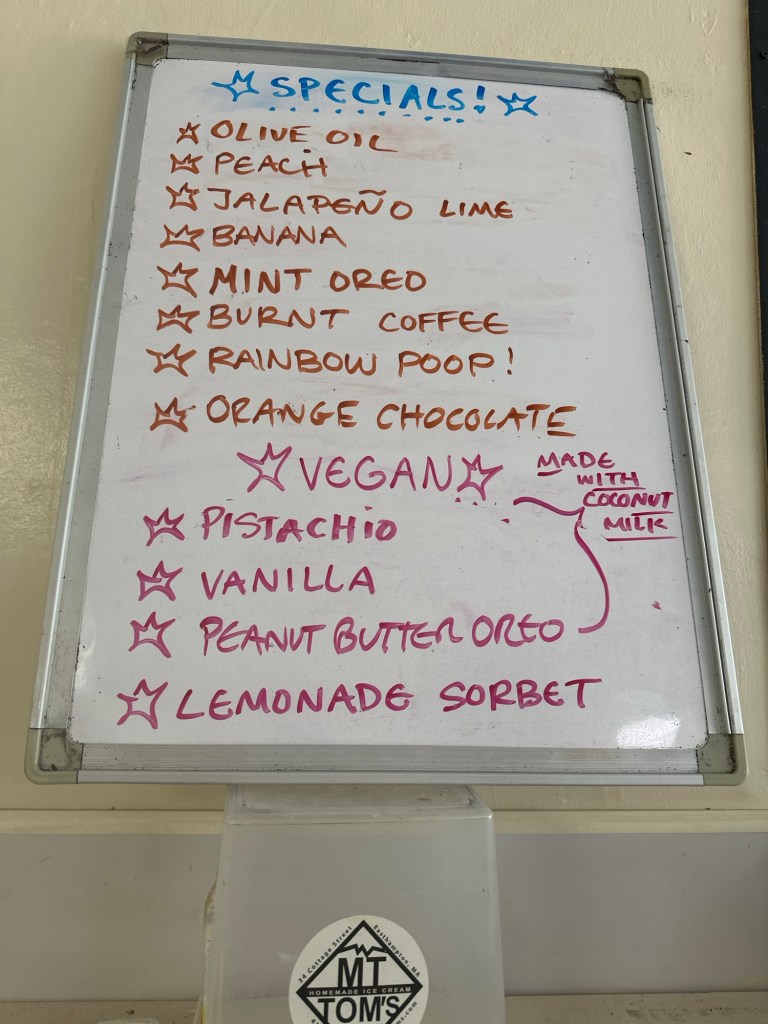 SPECIALS!
OLIVE OIL
PEACH
JALAPEÑO LIME
BANANA
MINT OREO
BURNT COFFEE
RAINBOW POOP!
ORANGE CHOCOLATE
VEGAN
MADE
WITH
COCONUT
MILK
PISTACHIO
VANILLA
PEANUT BUTTER OREO
LEMONADE SORBET
34 Cottage Street
Easthampton, MA
MT
HOMEMADE ICE CREAM
TOM'S